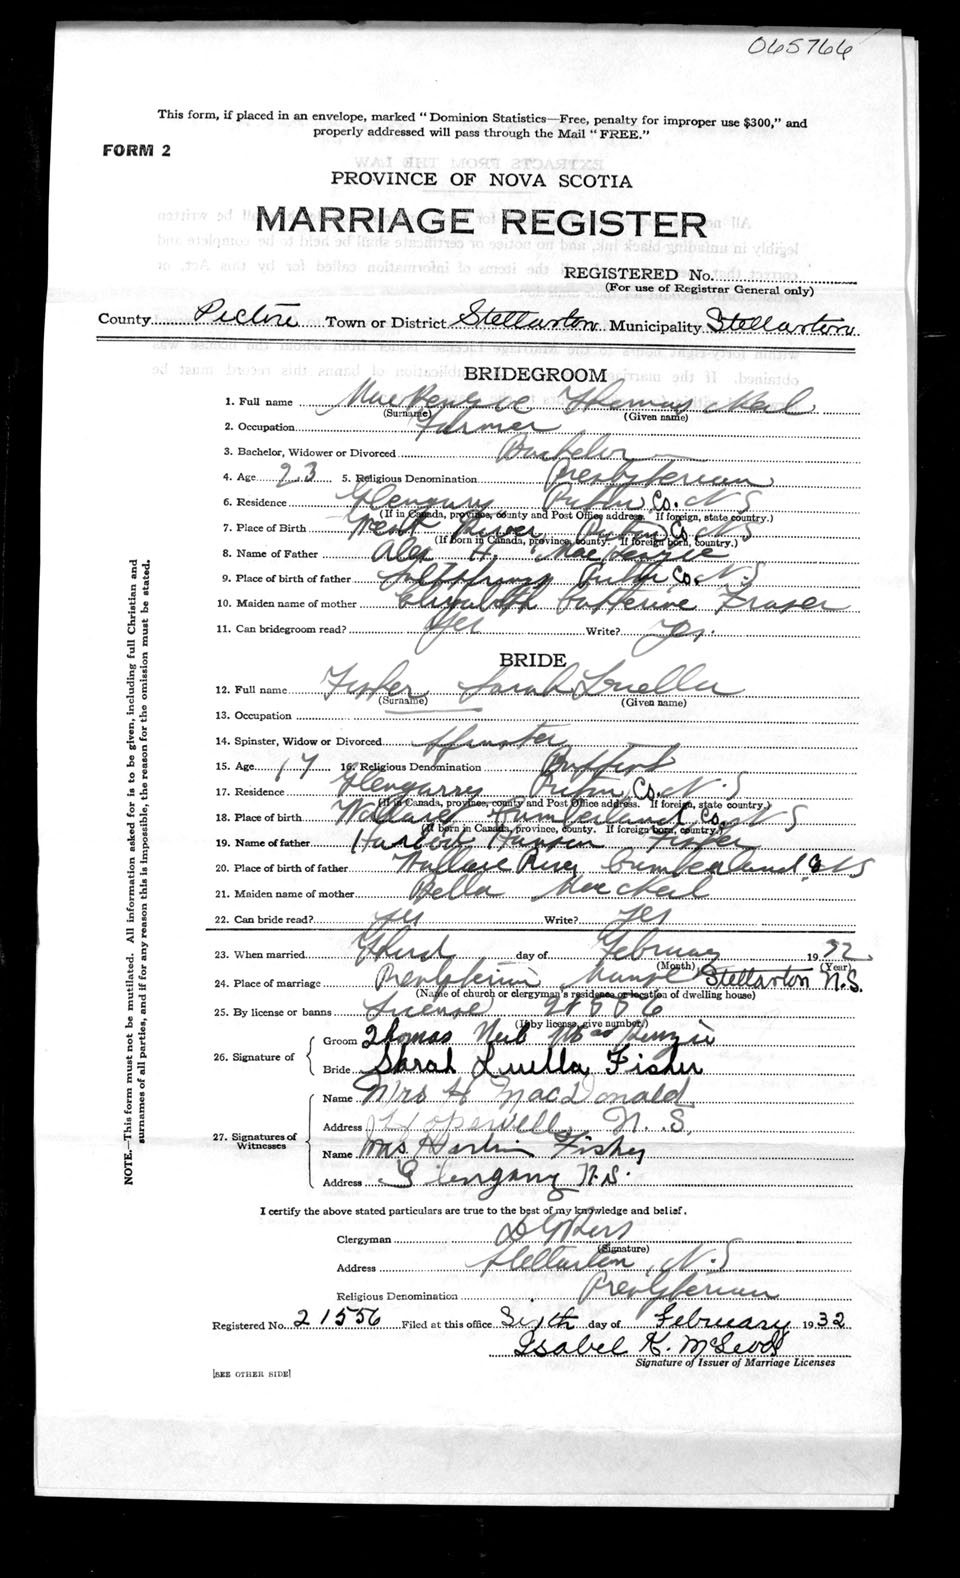 065766
This form, if placed in an envelope, marked "Dominion Statistics—Free, penalty for improper use $300," and
properly addressed will pass through the Mail "FREE."
FORM 2
PROVINCE OF NOVA SCOTIA
MARRIAGE REGISTER
REGISTERED No.
(For use of Registrar General only)
County Pictou Town or District Stellarton Municipality Stellarton
BRIDEGROOM
1. Full name MacKenzie Thomas Neil
(Surname) (Given name)
2. Occupation Farmer
3. Bachelor, Widower or Divorced Bachelor
4. Age 23 5. Religious Denomination Presbyterian
6. Residence Glengarry Pictou Co. N S
(If in Canada, province, county and Post Office address. If foreign, state country.)
7. Place of Birth West River Pictou Co N S
(If born in Canada, province, county. If foreign born, country.)
8. Name of Father Alex H. MacKenzie
9. Place of birth of father Pictou Co. N. S
10. Maiden name of mother Elizabeth Catherine Fraser
11. Can bridegroom read? Yes Write? Yes.
BRIDE
12. Full name Fisher Sarah Luella
(Surname) (Given name)
13. Occupation
14. Spinster, Widow or Divorced Spinster
15. Age 17 16. Religious Denomination Baptist
17. Residence Glengarry Pictou Co. N. S
(If in Canada, province, county and Post Office address. If foreign, state country.)
18. Place of birth Wallace Cumberland Co. N S
(If born in Canada, province, county. If foreign born, country.)
19. Name of father Hanson Fisher
20. Place of birth of father Wallace River Cumberland Co N S
21. Maiden name of mother Bella MacNeil
22. Can bride read? Yes Write? Yes
23. When married Third day of February 1932
(Month) (Year)
24. Place of marriage Presbyterian Manse Stellarton N.S.
(Name of church or clergyman's residence or location of dwelling house)
25. By license or banns License 21556
(If by license, give number)
26. Signature of
Groom Thomas Neil MacKenzie
Bride Sarah Luella Fisher
27. Signatures of
Witnesses
Name Mrs H MacDonald
Address Hopewell N. S.
Name Mrs. Fisher
Address Glengarry N.S.
I certify the above stated particulars are true to the best of my knowledge and belief.
Clergyman
(Signature)
Address Stellarton, N. S
Religious Denomination Presbyterian
Registered No. 21556 Filed at this office Sixth day of February 1932
Isabel K. McLeod
Signature of Issuer of Marriage Licenses
[SEE OTHER SIDE]
NOTE.—This form must not be mutilated. All information asked for is to be given, including full Christian and
surnames of all parties, and if for any reason this is impossible, the reason for the omission must be stated.